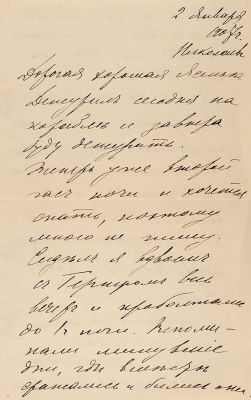 2 Января
1907 г.
Николаевъ
Дорогая хорошая
Дежурилъ сегодня на
кораблѣ и завтра
буду дежурить.
Теперь уже второй
часъ ночи и хочется
спать, поэтому
много не пишу.
Сидѣли я вдвоемъ
съ весь
вечеръ и проболтали
до 12 ночи. Вспоми-
нали минувшіе
дни, гдѣ вмѣстѣ
сражались и бились они